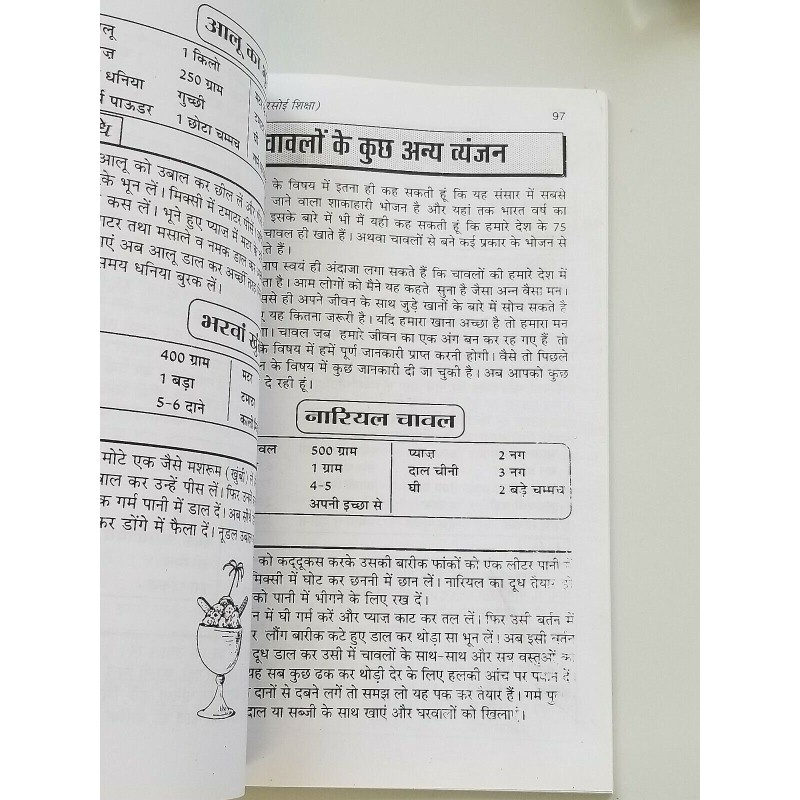 आलू का
लू
1 किलो
ज़
250 ग्राम
धनिया
गुच्छी
पाऊडर
1 छोटा चम्मच
आलू को उबाल कर छील लें
के भून लें। मिक्सी में टमाटर पीस
कस लें। भूने हुए प्याज में
ाटर तथा मसाले व नमक डाल कर
एं अब आलू डाल कर अच्छी तरह
समय धनिया बुरक लें।
भरवां
400 ग्राम
1 बड़ा
5-6 दाने
मोटे एक जैसे मशरूम (खुंबी)
बाल कर उन्हें पीस लें। फिर उन्हें
क गर्म पानी में डाल दें। अब
कर डोंगे में फैला दें। नूडल उबाल
रसोई शिक्षा)
97
चावलों के कुछ अन्य व्यंजन
के विषय में इतना ही कह सकती हूं कि यह संसार में सबसे
जाने वाला शाकाहारी भोजन है और यहां तक भारत वर्ष का
इसके बारे में भी मैं यही कह सकती हूं कि हमारे देश के 75
चावल ही खाते हैं। अथवा चावलों से बने कई प्रकार के भोजन से
ते हैं।
आप स्वयं ही अंदाजा लगा सकते हैं कि चावलों की हमारे देश में
ता है। आम लोगों को मैने यह कहते सुना है जैसा अन्न वैसा मन।
से ही अपने जीवन के साथ जुड़े खानों के बारे में सोच सकते है
यह कितना जरूरी है। यदि हमारा खाना अच्छा है तो हमारा मन
गा। चावल जब हमारे जीवन का एक अंग बन कर रह गए हैं तो
के विषय में हमें पूर्ण जानकारी प्राप्त करनी होगी। वैसे तो पिछले
न के विषय में कुछ जानकारी दी जा चुकी है। अब आपको कुछ
दे रही हूं।
नारियल चावल
वल 500 ग्राम प्याज़ 2 नग
1 ग्राम दाल चीनी 3 नग
4-5 घी 2 बड़े चम्मच
अपनी इच्छा से
को कद्दूकस करके उसकी बारीक फांकों को एक लीटर पानी में
मिक्सी में घोट कर छननी में छान लें। नारियल का दूध तैयार हो
को पानी में भीगने के लिए रख दें।
न में घी गर्म करें और प्याज़ काट कर तल लें। फिर उसी बर्तन में
र लौंग बारीक कटे हुए डाल कर थोड़ा सा भून लें। अब इसी बर्तन
दूध डाल कर उसी में चावलों के साथ-साथ और सब वस्तुओं का
यह सब कुछ ढक कर थोड़ी देर के लिए हलकी आंच पर पकने दें।
दानों से दबने लगें तो समझ लो यह पक कर तैयार हैं। गर्म
दाल या सब्जी के साथ खाएं और घरवालों को खिलाएं।